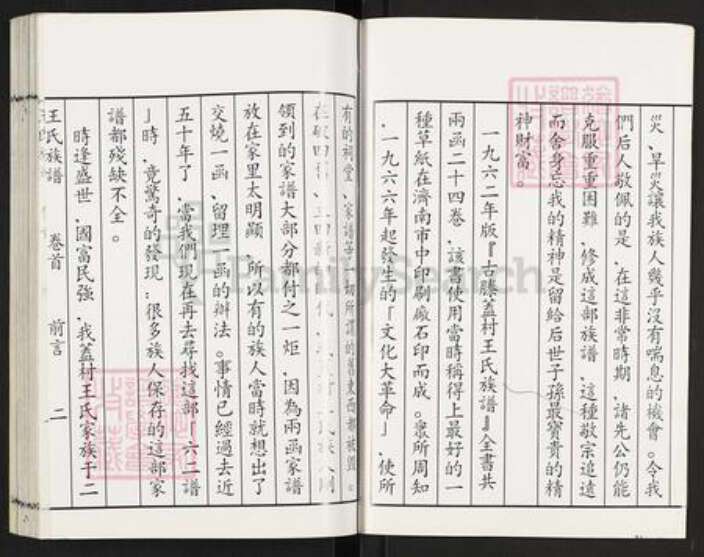 災、旱災讓我族人幾乎沒有喘息的機會。令我
們后人敬佩的是，在這非常時期，諸先公仍能
克服重重困難，修成這部族譜，這種敬宗追遠
而舍身忘我的精神是留給后世子孫最寶貴的精
神財富。
一九六二年版『古滕蓋村王氏族譜』全書共
兩函二十四卷，該書使用當時稱得上最好的一
種草紙在濟南市中印刷廠石印而成。衆所周知
，一九六六年起發生的「文化大革命」，使所
有的祠堂、家譜等一切所謂的舊東西都被毀。
在破四舊、
領到的家譜大部分都付之一炬，因為兩函家譜
放在家里太明顯，所以有的族人當時就想出了
交燒一函、留埋一函的辦法。事情已經過去近
五十年了，當我們現在再去尋找這部「六二譜
」時，竟驚奇的發現：很多族人保存的這部家
譜都殘缺不全。
時逢盛世，國富民強，我蓋村王氏家族于二
王氏族譜 卷首 前言 二
FamilySearch